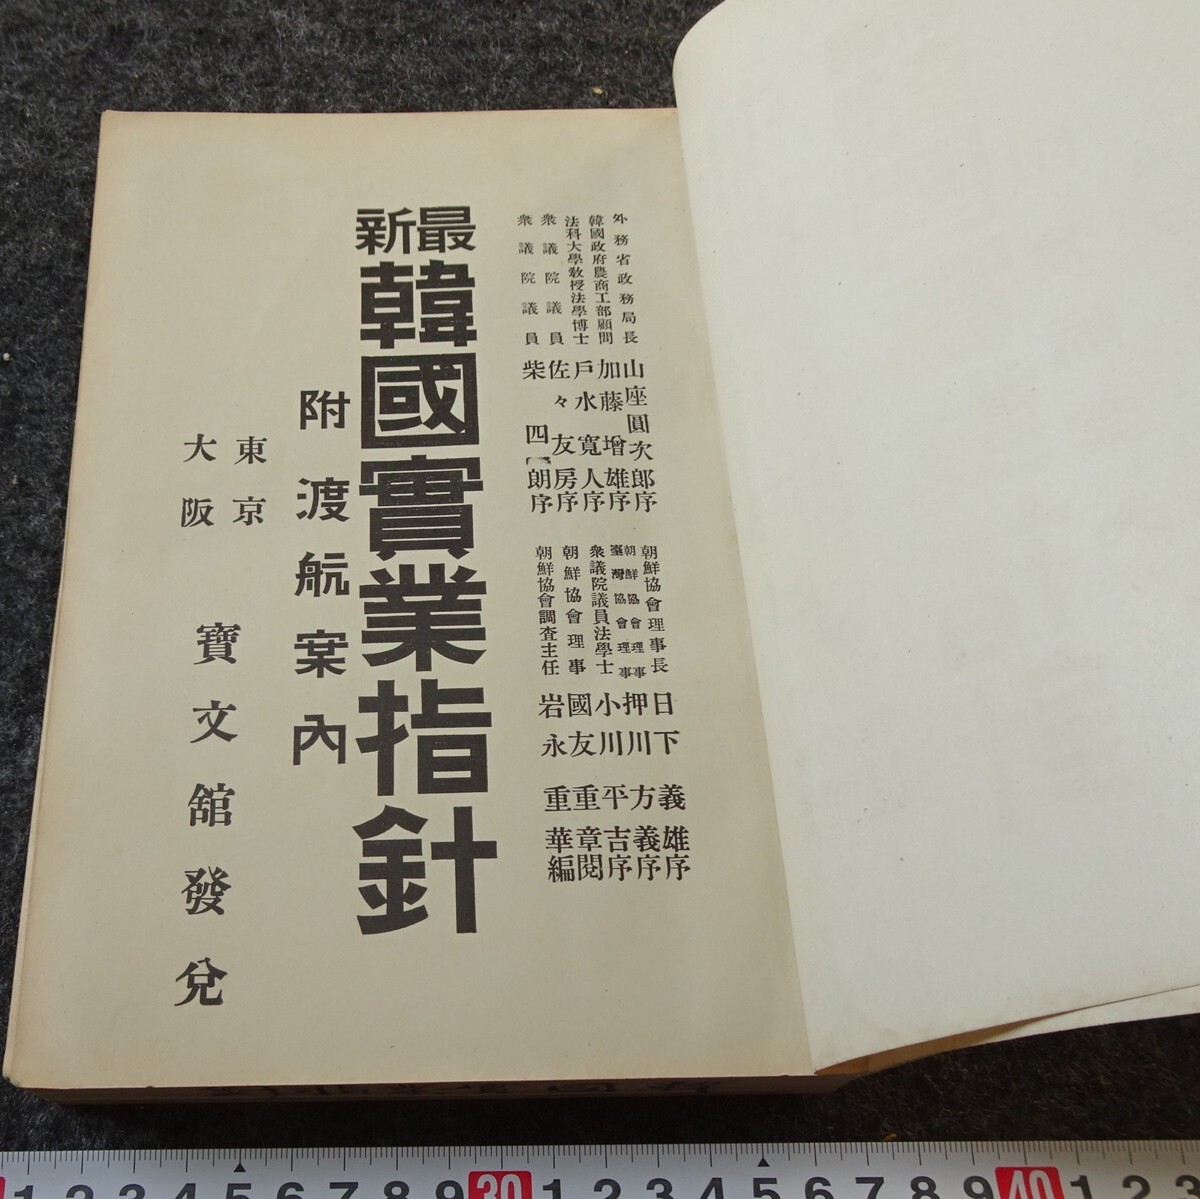 外務省政務局長 山座圓次郎序
韓國政府農商工部顧問 加藤增雄序
法科大學教授法學博士 戶水寬人序
衆議院議員 佐々友房序
衆議院議員 柴四朗序
朝鮮協會理事長 日下義雄序
朝鮮協會理事
臺灣協會理事 押川方義序
衆議院議員法學士 小川平吉序
朝鮮協會理事 國友重章閱
朝鮮協會調查主任 岩永重華編
最新 韓國實業指針
附渡航案內
東京
大阪 寶文舘發兌
1 2 3 4 5 6 7 8 9 30 1 2 3 4 5 6 7 8 9 40 1 2 3